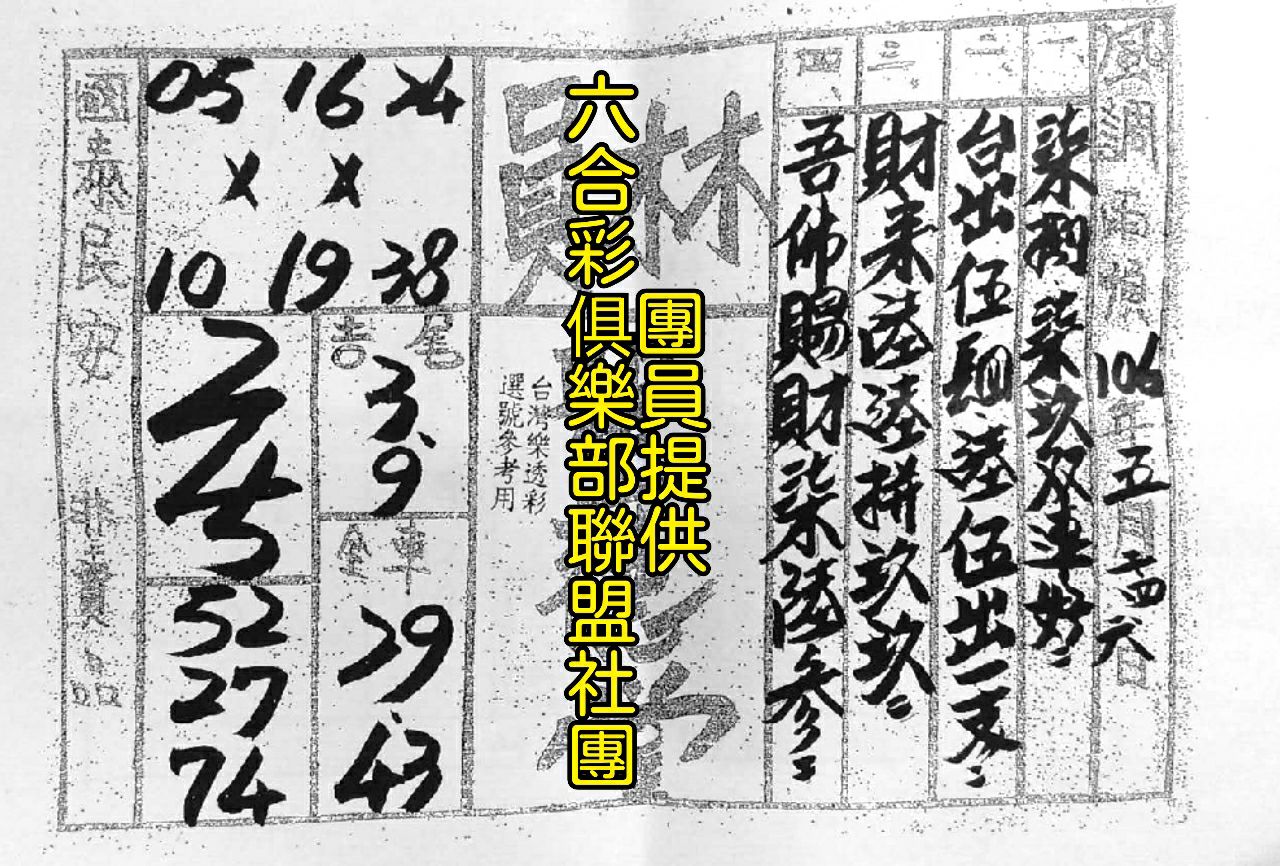 風調雨順
106年五月廿四六日
一、
柒捌柒玖双連好
二、
台出伍肆陸伍出一支
三、
財來陸陸拼玖玖
四、
吾佛賜財柒陸參
林
團員提供
六合彩俱樂部聯盟社團
台灣樂透彩
選號參考用
05 16 24
x x
10 19 38
吉尾
3、9
全車
29、43
2
45
52
27
74
國泰民安